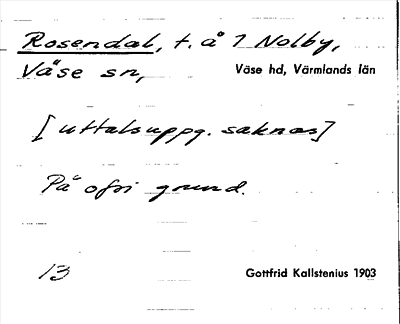 Rosendal, t. å 1 Nolby,
Väse sn, Väse hd, Värmlands län
[uttalsuppg. saknas]
På ofri grund.
13 Gottfrid Kallstenius 1903